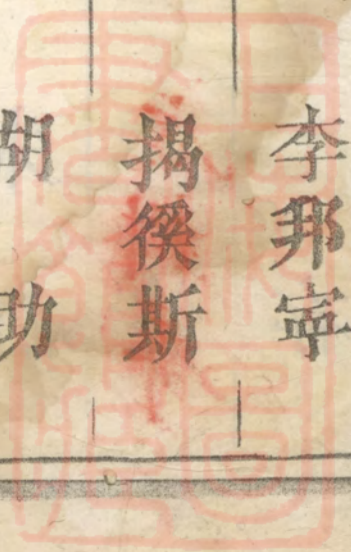 李邦寧
揭徯斯
胡助